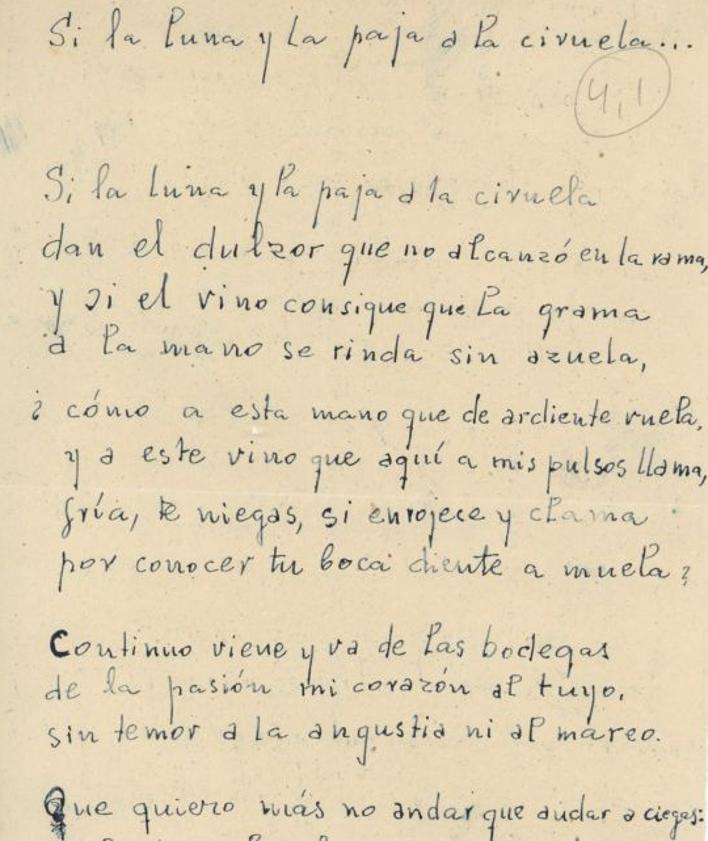 Si la luna y la paja a la ciruela...
4,1
Si la luna y la paja a la ciruela
dan el dulzor que no alcanzó en la rama,
y si el vino consigue que la grama
a la mano se rinda sin azuela,
¿cómo a esta mano que de ardiente vuela,
y a este vino que aquí a mis pulsos llama,
fría, te niegas, si enrojece y clama
por conocer tu boca diente a muela?
Continuo viene y va de las bodegas
de la pasión mi corazón al tuyo,
sin temor a la angustia ni al mareo.
Que quiero más no andar que andar a ciegas: